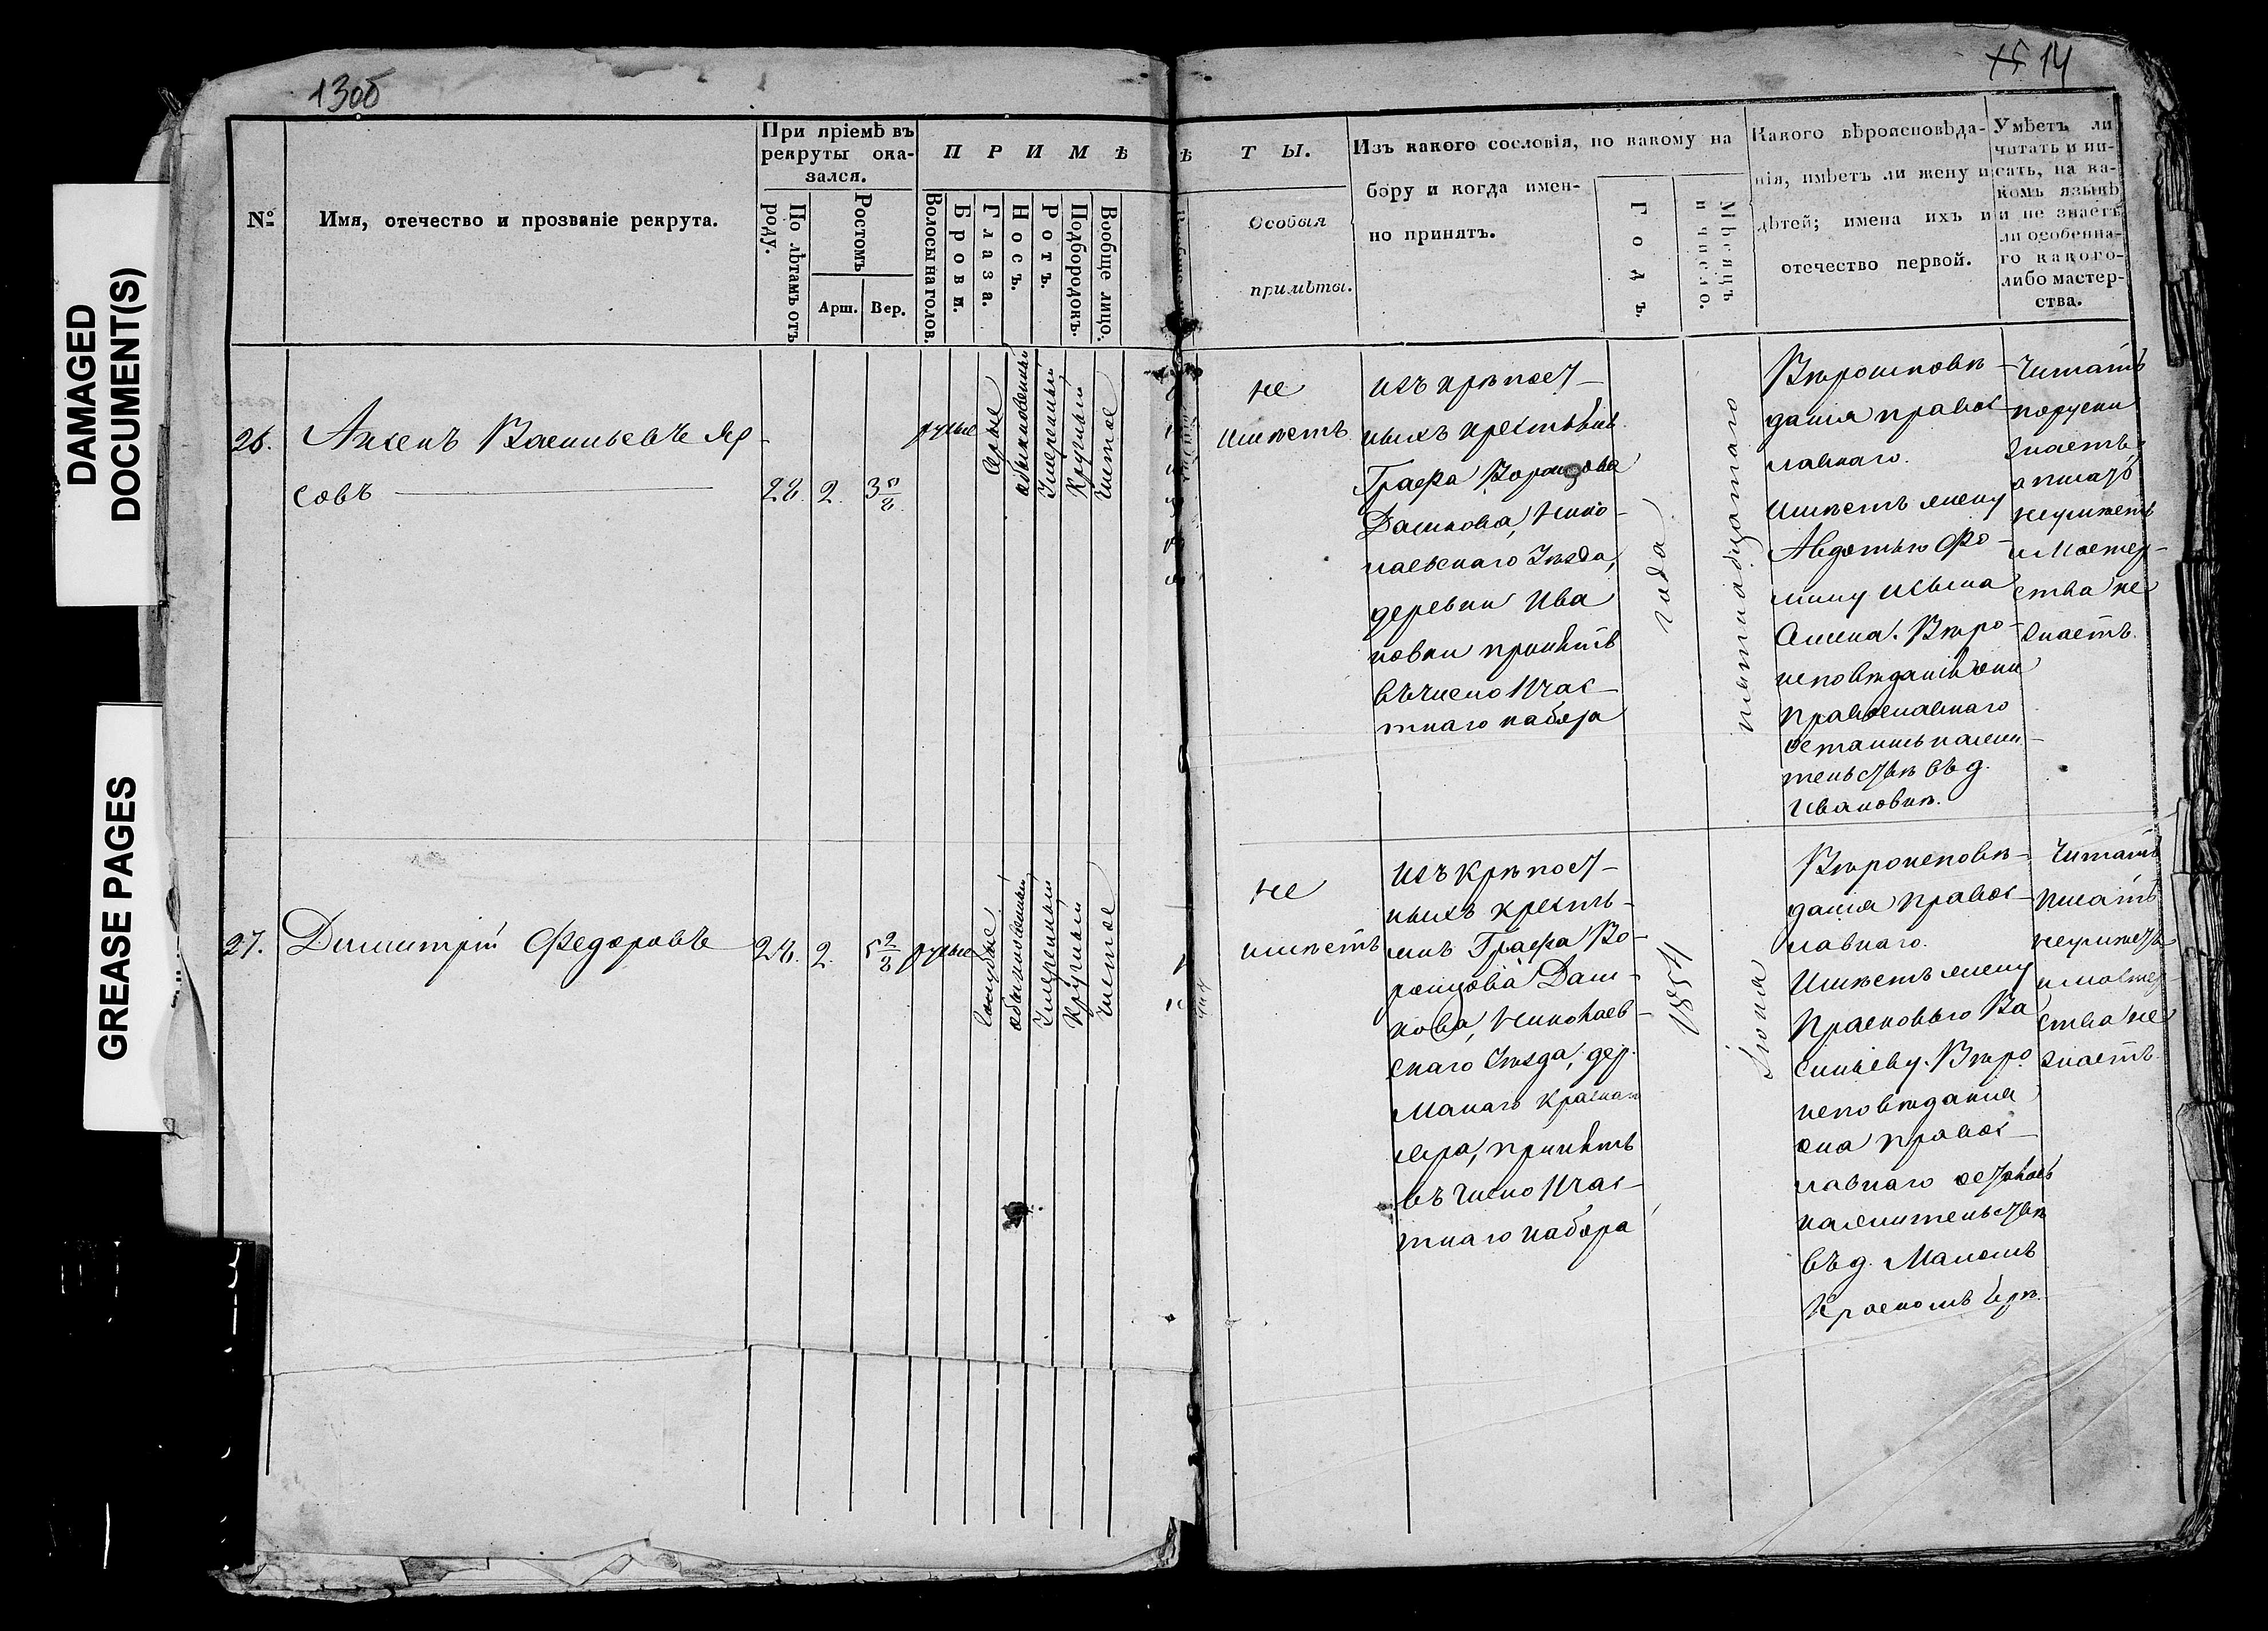 13об
15 14
DAMAGED
DOCUMENT(S)
GREASE PAGES
№
Имя, отечество и прозваніе рекрута.
При пріемѣ въ
рекруты ока-
зался.
По лѣтамъ отъ
роду.
Ростомъ
Арш.
Вер.
П Р И М Ѣ
Волосы на голов.
Брови.
Глаза.
Носъ.
Ротъ.
Подбородокъ.
Вообще лицо.
Ѣ Т Ы.
Особыя
примѣты.
Изъ какого сословія, по какому на
бору и когда имен-
но принятъ.
Годъ.
Мѣсяцъ
и число.
Какого вѣроисповѣда-
нія, имѣетъ ли жену и
дѣтей; имена ихъ и
отечество первой.
Умѣетъ ли
читать и пи-
сать, на ка-
комъ языкѣ
и не знаетъ
ли особенна-
го какого-
либо мастер-
ства.
26.
Аксенъ Васильевъ Яр-
совъ
22. 2. 3 5/8
русые
Серые
обыкновенный
Умеренный
Круглый
Чистое
не
имѣетъ
изъ крѣпост-
ныхъ крестьянъ
Графа Воронцова
Дашкова, Нико-
лаевскаго Уѣзда,
деревни Ива
новки принятъ
въ число Час-
тнаго набора
года
пятнадцатаго
Вѣроисповѣ-
данія правос-
лавнаго.
имѣетъ жену
Авдотью Фо-
мину и сына
Семена. Вѣро-
исповѣданія они
православнаго
остались на жи-
тельствѣ въ д.
Ивановкѣ.
Читать
поруски
знаетъ
а писать
неумѣетъ
и Мастер-
ства не
знаетъ.
27.
Димитрій Федоровъ
28. 2. 5 2/8
русые
Голубые
обыкновенный
Умеренный
Круглый
Чистое
не
имѣетъ
Изъ Крѣпост-
ныхъ кресть-
янъ Графа Во-
ронцова Даш-
кова, Николаев-
скаго Уѣзда, дер.
Малаго Краснаго
яра, принятъ
въ число Час-
тнаго набора
1854
Іюня
Вѣроисповѣ-
данія правос-
лавнаго.
Имѣетъ жену
Прасковью Ва
сильеву. Вѣро
исповѣданія
она правос-
лавнаго осталась
на жительствѣ
въ д. Маломъ
Красномъ Ярѣ.
Читать
писать
неумѣетъ
и мастер-
ства не
знаетъ.